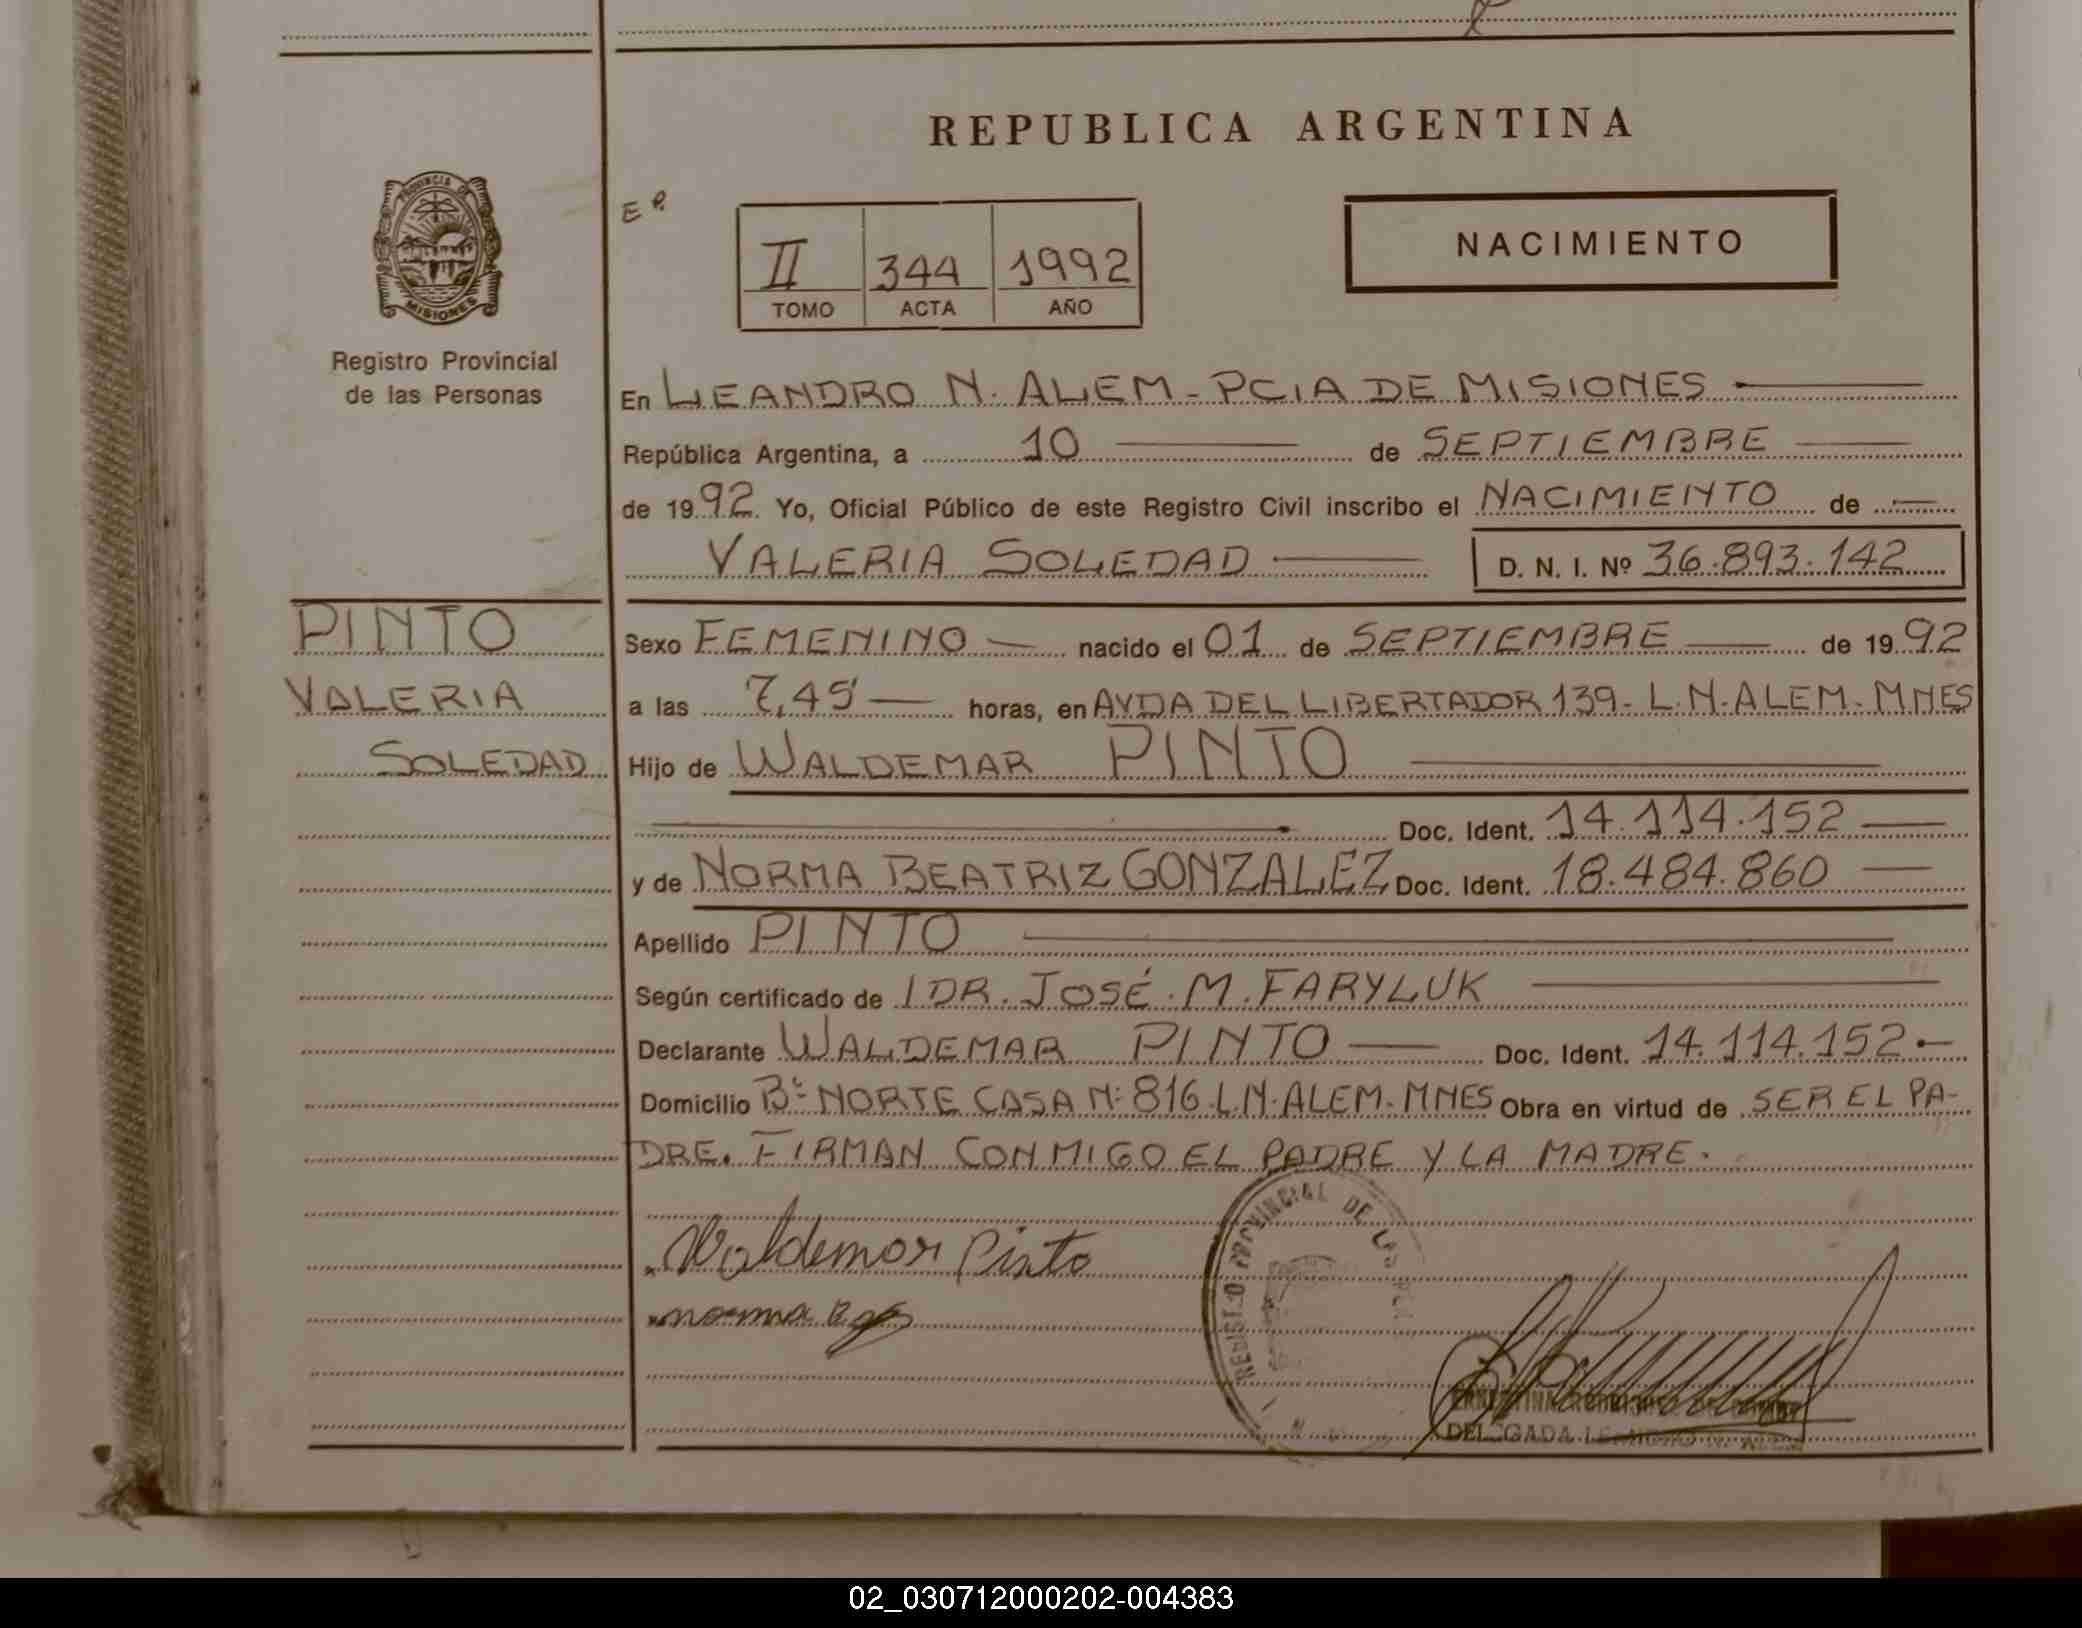 REPUBLICA ARGENTINA
PROVINCIA DE
MISIONES
Registro Provincial
de las Personas
E P.
II 344 1992
TOMO ACTA AÑO
NACIMIENTO
En LEANDRO N. ALEM - PCIA DE MISIONES
República Argentina, a 10 de SEPTIEMBRE
de 1992. Yo, Oficial Público de este Registro Civil inscribo el NACIMIENTO de
VALERIA SOLEDAD D. N. I. Nº 36.893.142
PINTO
VALERIA
SOLEDAD
Sexo FEMENINO nacido el 01 de SEPTIEMBRE de 1992
a las 7,45 horas, en AVDA DEL LIBERTADOR 139 - L.N. ALEM - MNES
Hijo de WALDEMAR PINTO
Doc. Ident. 14.114.152
y de NORMA BEATRIZ GONZALEZ Doc. Ident. 18.484.860
Apellido PINTO
Según certificado de DR. JOSÉ M. FARYLUK
Declarante WALDEMAR PINTO Doc. Ident. 14.114.152.-
Domicilio Bº NORTE CASA Nº 816 - L.N. ALEM - MNES Obra en virtud de SER EL PA-
DRE. FIRMAN CONMIGO EL PADRE Y LA MADRE.
Waldemar Pinto
norma B
REGISTRO PROVINCIAL DE LAS
DELEGADA
02_030712000202-004383